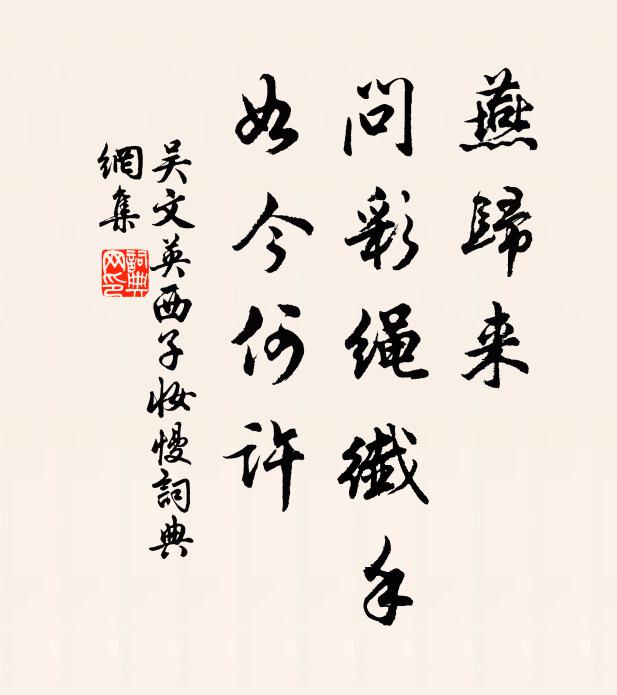 燕歸来
問彩绳纖手
如今何許
吴文英西子妆慢詞典
網集
詞典
网印